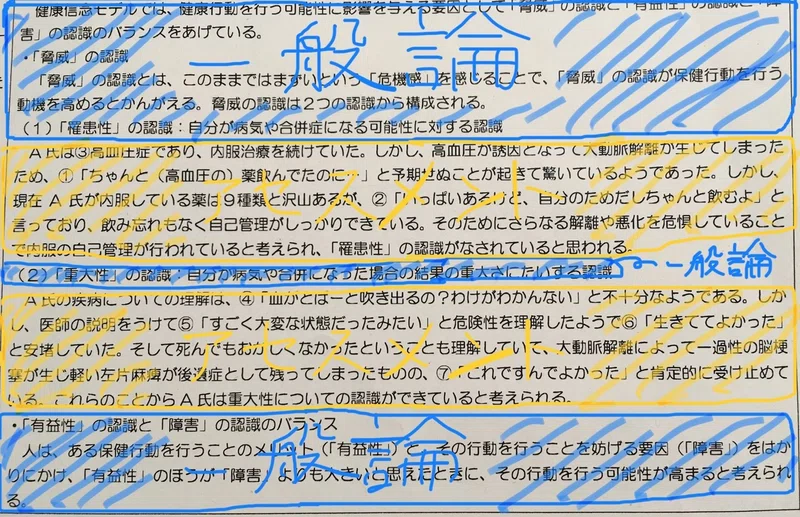 健康信念モデルでは、健康行動を行う可能性に影響を与える要因として「脅威」の認識と「有益性」の認識と「障
害」の認識のバランスをあげている。
・「脅威」の認識
「脅威」の認識とは、このままではまずいという「危機感」を感じることで、「脅威」の認識が保健行動を行う
動機を高めるとかんがえる。脅威の認識は2つの認識から構成される。
(1)「罹患性」の認識:自分が病気や合併症になる可能性に対する認識
一般論
A氏は③高血圧症であり、内服治療を続けていた。しかし、高血圧が誘因となって大動脈解離が生じてしまった
ため、①「ちゃんと(高血圧の)薬飲んでたのに…」と予期せぬことが起きて驚いているようであった。しかし、
現在A氏が内服している薬は9種類と沢山あるが、②「いっぱいあるけど、自分のためだしちゃんと飲むよ」と
言っており、飲み忘れもなく自己管理がしっかりできている。そのためにさらなる解離や悪化を危惧していること
で内服の自己管理が行われていると考えられ、「罹患性」の認識がなされていると思われる。
アセスメント
(2)「重大性」の認識:自分が病気や合併になった場合の結果の重大さにたいする認識
一般論
A氏の疾病についての理解は、④「血がどばーと吹き出るの?わけがわかんない」と不十分なようである。しか
し、医師の説明をうけて⑤「すごく大変な状態だったみたい」と危険性を理解したようで⑥「生きててよかった」
と安堵していた。そして死んでもおかしくなかったということも理解していて、大動脈解離によって一過性の脳梗
塞が生じ軽い左片麻痺が後遺症として残ってしまったものの、⑦「これですんでよかった」と肯定的に受け止めて
いる。これらのことからA氏は重大性についての認識ができていると考えられる。
アセスメント
・「有益性」の認識と「障害」の認識のバランス
人は、ある保健行動を行うことのメリット(「有益性」)と、その行動を行うことを妨げる要因(「障害」)をはか
りにかけ、「有益性」のほうが「障害」よりも大きいと思えたときに、その行動を行う可能性が高まると考えられ
る。
一般論